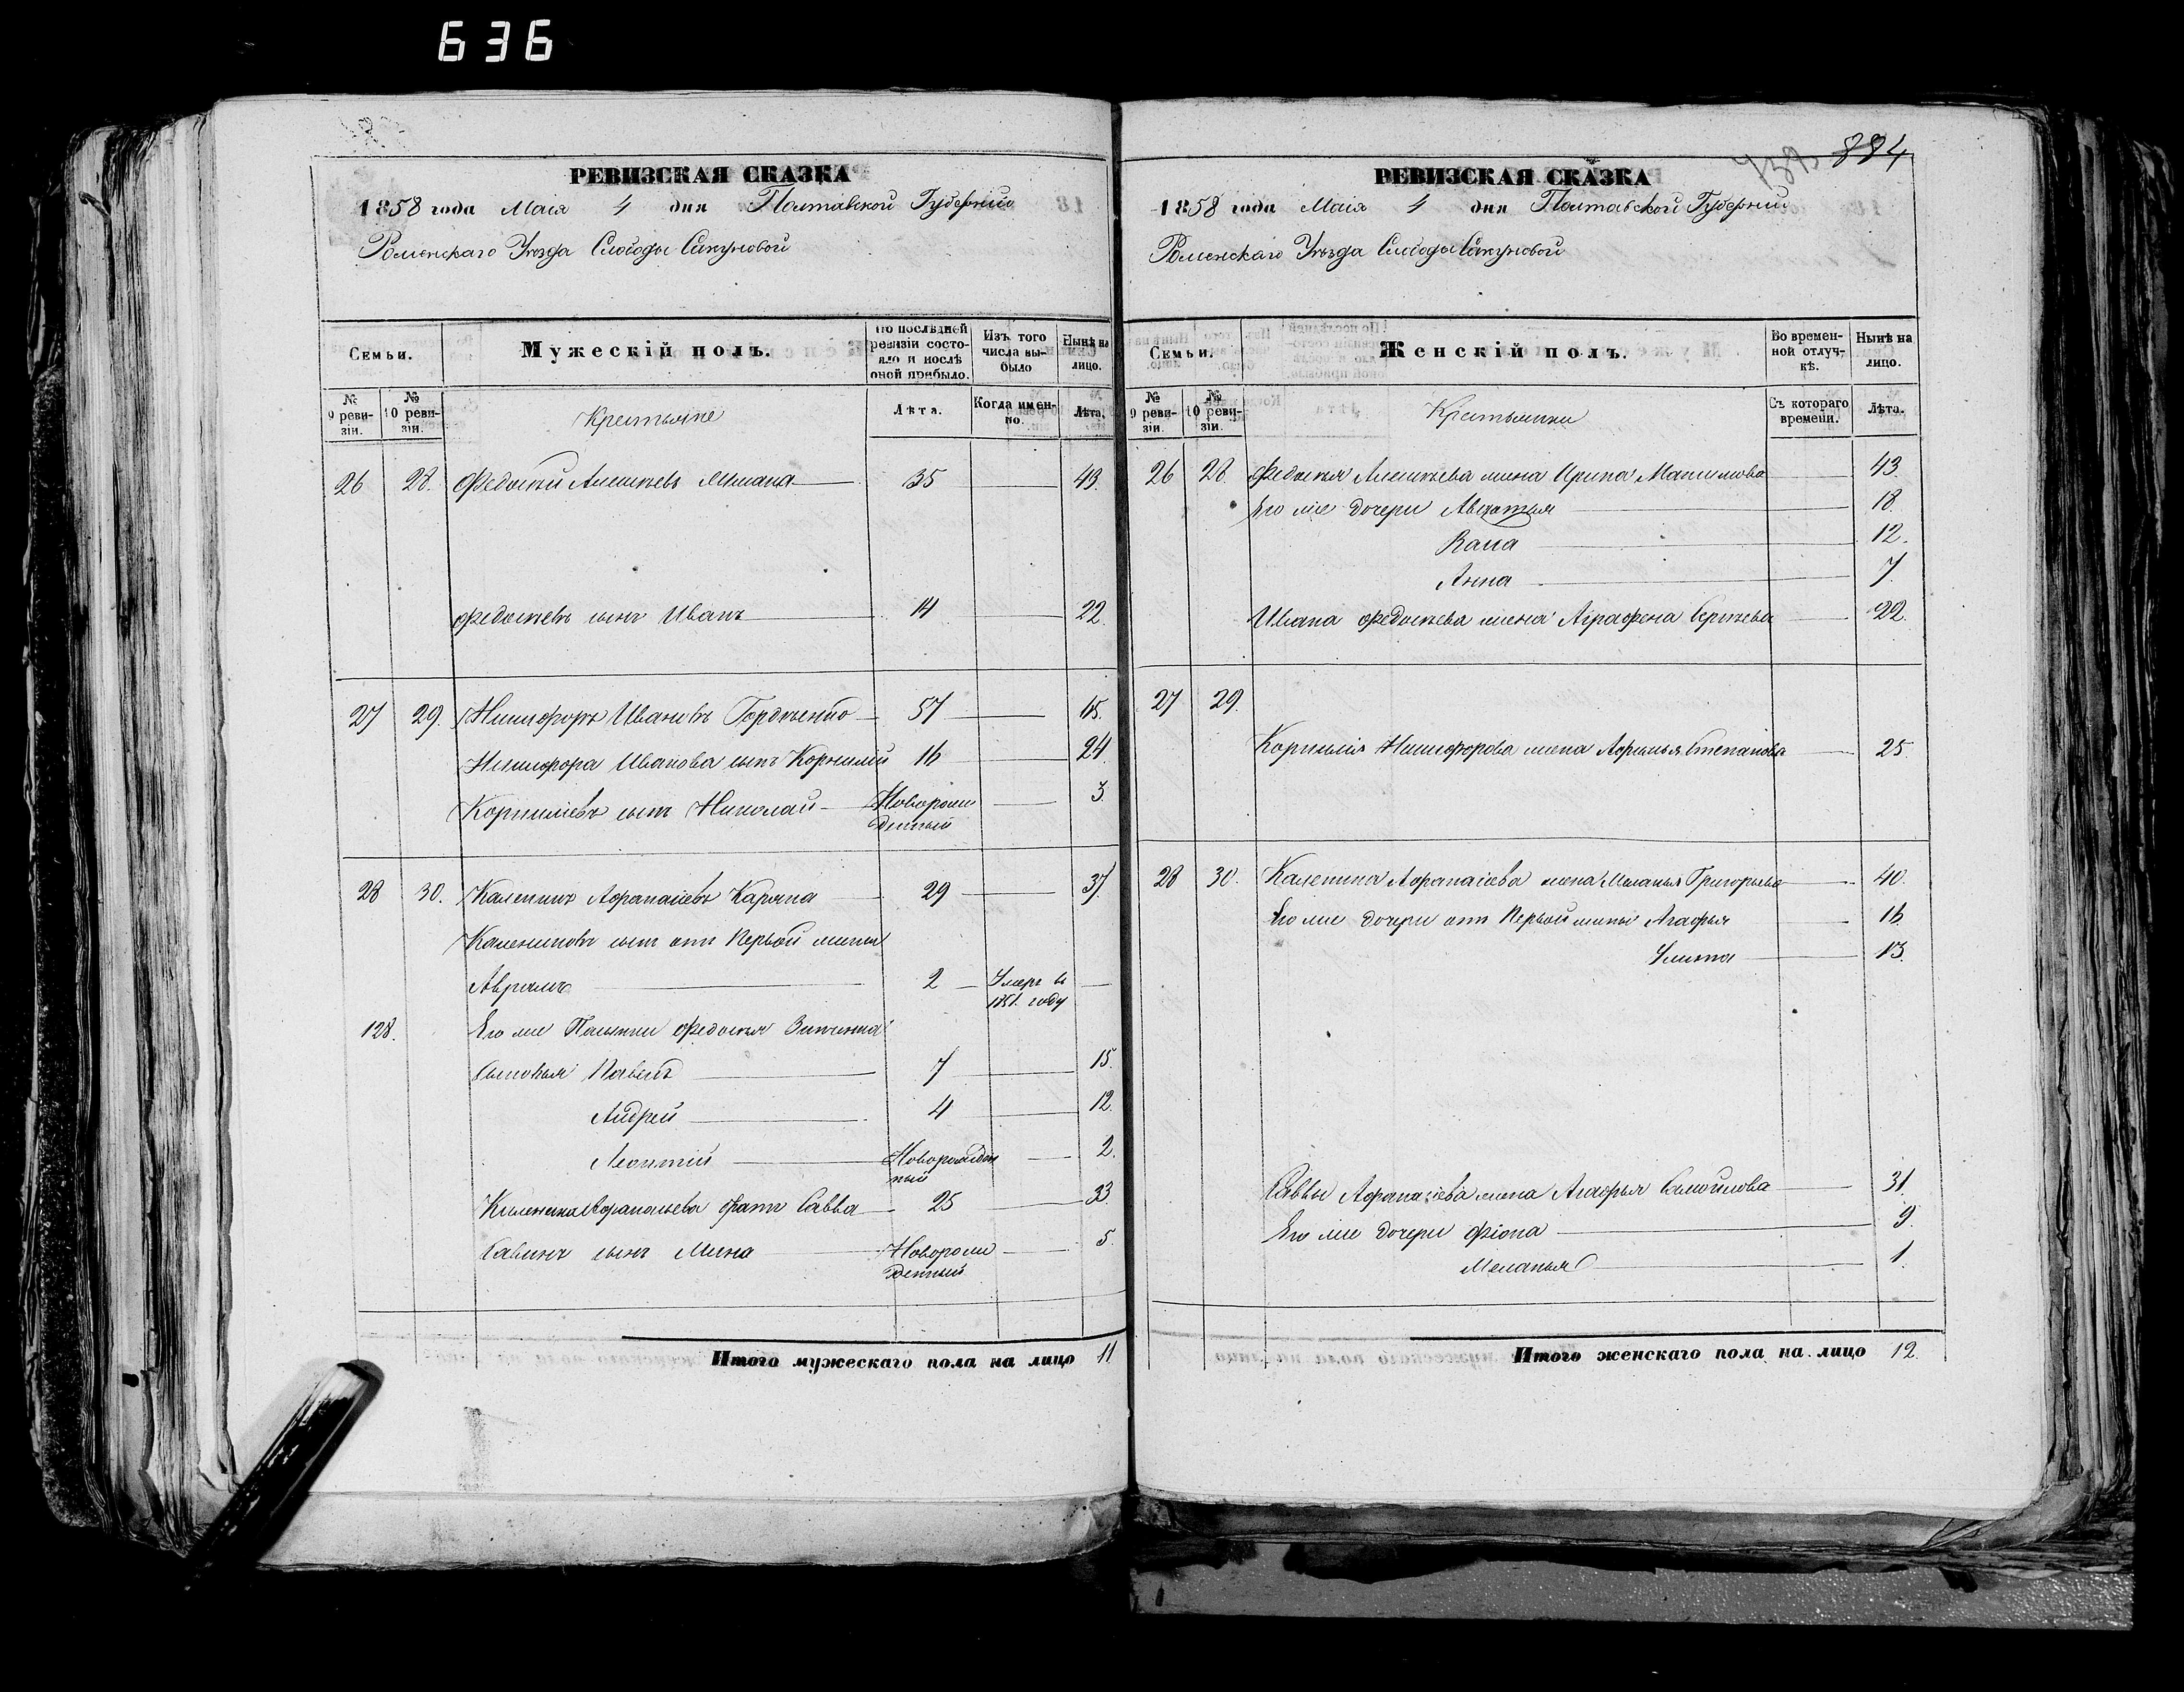 636
РЕВИЗСКАЯ СКАЗКА
1858 года Маія 4 дня Полтавской Губерніи
Роменскаго Уѣзда Слободы Сакуновой
Семьи.
Мужескій полъ.
По послѣдней ревизіи состояло и послѣ оной прибыло.
Изъ того числа выбыло
Нынѣ на лицо.
№ 9 ревизіи.
№ 10 ревизіи.
Крестьяне
Лѣта.
Когда именно.
Лѣта.
26 28. Федосій Алексѣевъ 35 43.
Федосѣевъ сынъ Иванъ 14 22.
27 29. Никифоръ Ивановъ Гордѣенко 57 65.
Никифора Иванова сынъ Корнилій 16 24.
Корниліевъ сынъ Николай Новорож 3.
денный
28 30. Каленикъ Афанасіевъ Каряка 29 37.
Калениковъ сынъ отъ Первой жены
Аврамъ 2 Умеръ въ
1851. году
128. Его же Пасынки Федосья Зинченка
сыновья Павелъ 7 15.
Андрей 4 12.
Леонтій Новорожден 2.
ный
Каленика Афанасьева братъ Савва 25 33.
Савинъ сынъ Мина Новорож 5.
денный
Итого мужескаго пола на лицо 11
884
РЕВИЗСКАЯ СКАЗКА
1858 года Маія 4 дня Полтавской Губерніи
Роменскаго Уѣзда Слободы Сакуновой
Семьи.
Женскій полъ.
Во временной отлучкѣ.
Нынѣ на лицо.
№ 9 ревизіи.
№ 10 ревизіи.
Крестьянки
Съ котораго времени.
Лѣта.
26 28. Федосѣя Алексѣева жена Ирина Максимова 43.
Его же дочери Авдотья 18.
12.
Анна 7.
Ивана Федосѣева жена Аграфена Сергѣева 22.
27 29.
Корнилія Никифорова жена Афимья Степанова 25.
28 30. Каленика Афанасіева жена Меланья Григорьева 40.
Его же дочери отъ Первой жены Агафья 16.
Улита 13.
Саввы Афанасіева жена Агафья Самойлова 31.
Его же дочери Фіона 9.
Меланья 1.
Итого женскаго пола на лицо 12.